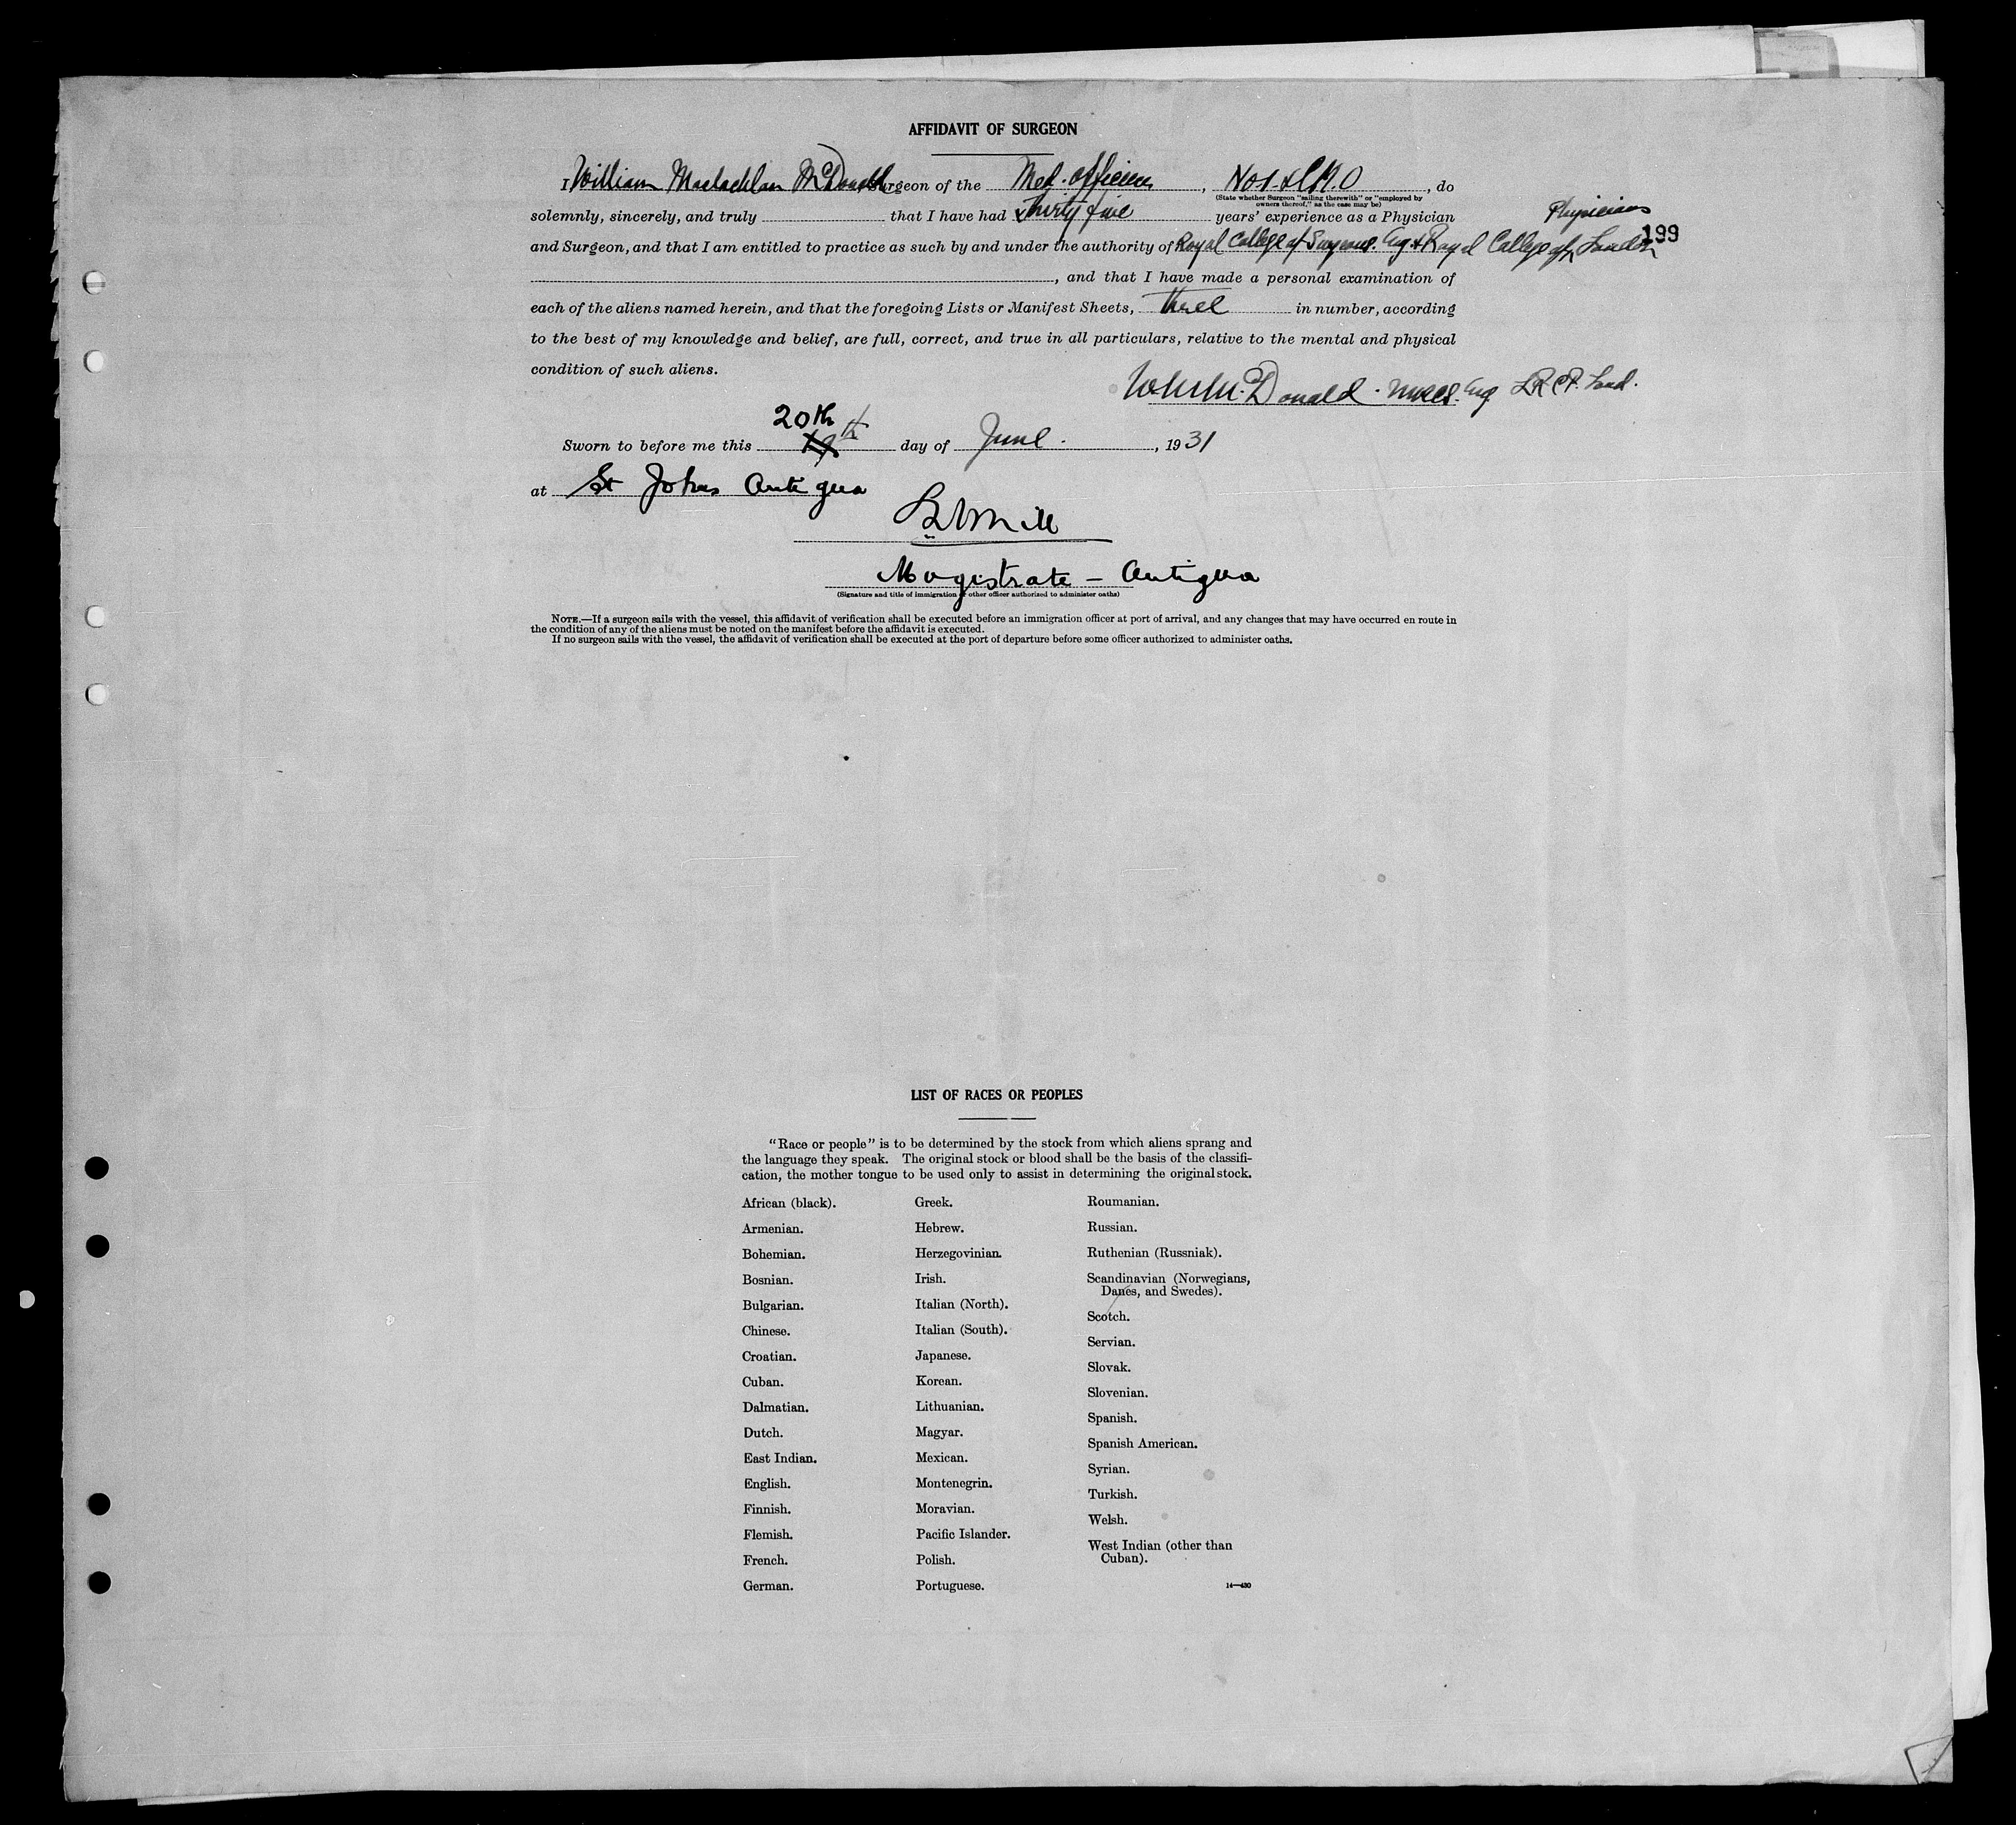 AFFIDAVIT OF SURGEON
I William Maclachlan McDonald Surgeon of the Med. Officer, No 1 & C.M.O, do
(State whether Surgeon "sailing therewith" or "employed by
owners thereof," as the case may be)
solemnly, sincerely, and truly that I have had Thirty five years' experience as a Physician
Physicians
199
and Surgeon, and that I am entitled to practice as such by and under the authority of Royal College of Surgeons. Eng & Royal College of London
, and that I have made a personal examination of
each of the aliens named herein, and that the foregoing Lists or Manifest Sheets, three in number, according
to the best of my knowledge and belief, are full, correct, and true in all particulars, relative to the mental and physical
condition of such aliens.
W.M.McDonald. MRCS. Eng LRCP. Lond.
20th
Sworn to before me this 19th day of June., 1931
at St Johns Antigua
Magistrate – Antigua
(Signature and title of immigration or other officer authorized to administer oaths)
NOTE.—If a surgeon sails with the vessel, this affidavit of verification shall be executed before an immigration officer at port of arrival, and any changes that may have occurred en route in
the condition of any of the aliens must be noted on the manifest before the affidavit is executed.
If no surgeon sails with the vessel, the affidavit of verification shall be executed at the port of departure before some officer authorized to administer oaths.
LIST OF RACES OR PEOPLES
"Race or people" is to be determined by the stock from which aliens sprang and
the language they speak. The original stock or blood shall be the basis of the classifi-
cation, the mother tongue to be used only to assist in determining the original stock.
African (black).
Armenian.
Bohemian.
Bosnian.
Bulgarian.
Chinese.
Croatian.
Cuban.
Dalmatian.
Dutch.
East Indian.
English.
Finnish.
Flemish.
French.
German.
Greek.
Hebrew.
Herzegovinian.
Irish.
Italian (North).
Italian (South).
Japanese.
Korean.
Lithuanian.
Magyar.
Mexican.
Montenegrin.
Moravian.
Pacific Islander.
Polish.
Portuguese.
Roumanian.
Russian.
Ruthenian (Russniak).
Scandinavian (Norwegians,
Danes, and Swedes).
Scotch.
Servian.
Slovak.
Slovenian.
Spanish.
Spanish American.
Syrian.
Turkish.
Welsh.
West Indian (other than
Cuban).
14—430